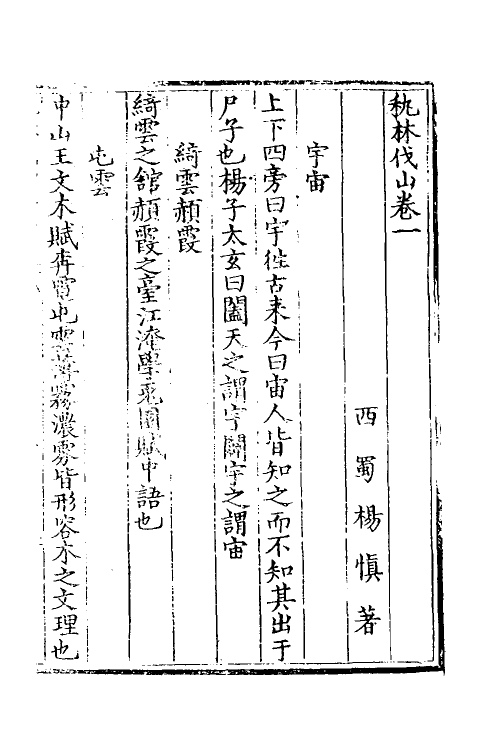 秇林伐山卷一
西蜀楊慎著
宇宙
上下四旁曰宇徃古来今曰宙人皆知之而不知其出于
尸子也楊子太玄曰闔天之謂宇闢宇之謂宙
綺雲赬霞
綺雲之舘赬霞之臺江淹學兎園賦中語也
屯雲
中山王文木賦奔電屯雲薄霧濃雰皆形容木之文理也